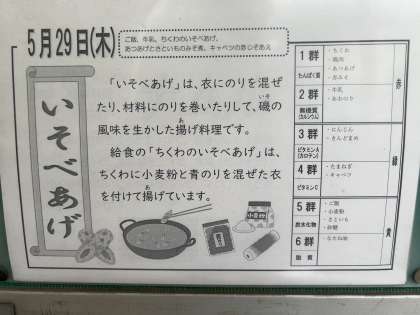 5月29日(木)
ご飯、牛乳、ちくわのいそべあげ、
あつあげとさといものみそ煮、キャベツのおひたしあえ
いそべあげ
「いそべあげ」は、衣にのりを混ぜ
たり、材料にのりを巻いたりして、磯の
いそ
風味を生かした揚げ料理です。
あ
給食の「ちくわのいそべあげ」は、
ちくわに小麦粉と青のりを混ぜた衣
を付けて揚げています。
あ
小麦粉
1群
たんぱく質
・ちくわ
・鶏肉
・あつあげ
・みそ
2群
無機質
(カルシウム)
・牛乳
・あおのり
赤
3群
ビタミンA
(カロテン)
・にんじん
・さんどまめ
4群
ビタミンC
・たまねぎ
・キャベツ
緑
5群
炭水化物
・ご飯
・小麦粉
・さといも
・砂糖
6群
脂質
・なたね油
黄